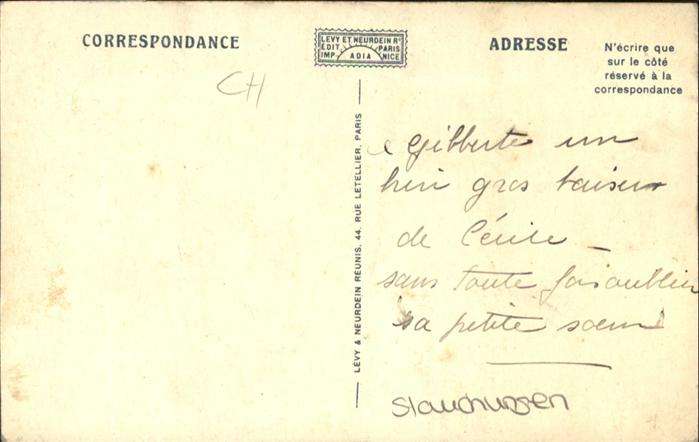 CORRESPONDANCE
LEVY ET NEURDEIN Rs
EDIT PARIS
IMP. ADIA NICE
ADRESSE
N'écrire que
sur le côté
réservé à la
correspondance
CH
LÉVY & NEURDEIN RÉUNIS, 44, RUE LETELLIER, PARIS
Gilberte un
bien gros baiser
de Cécile
sans toute fois oublier
sa petite soeur